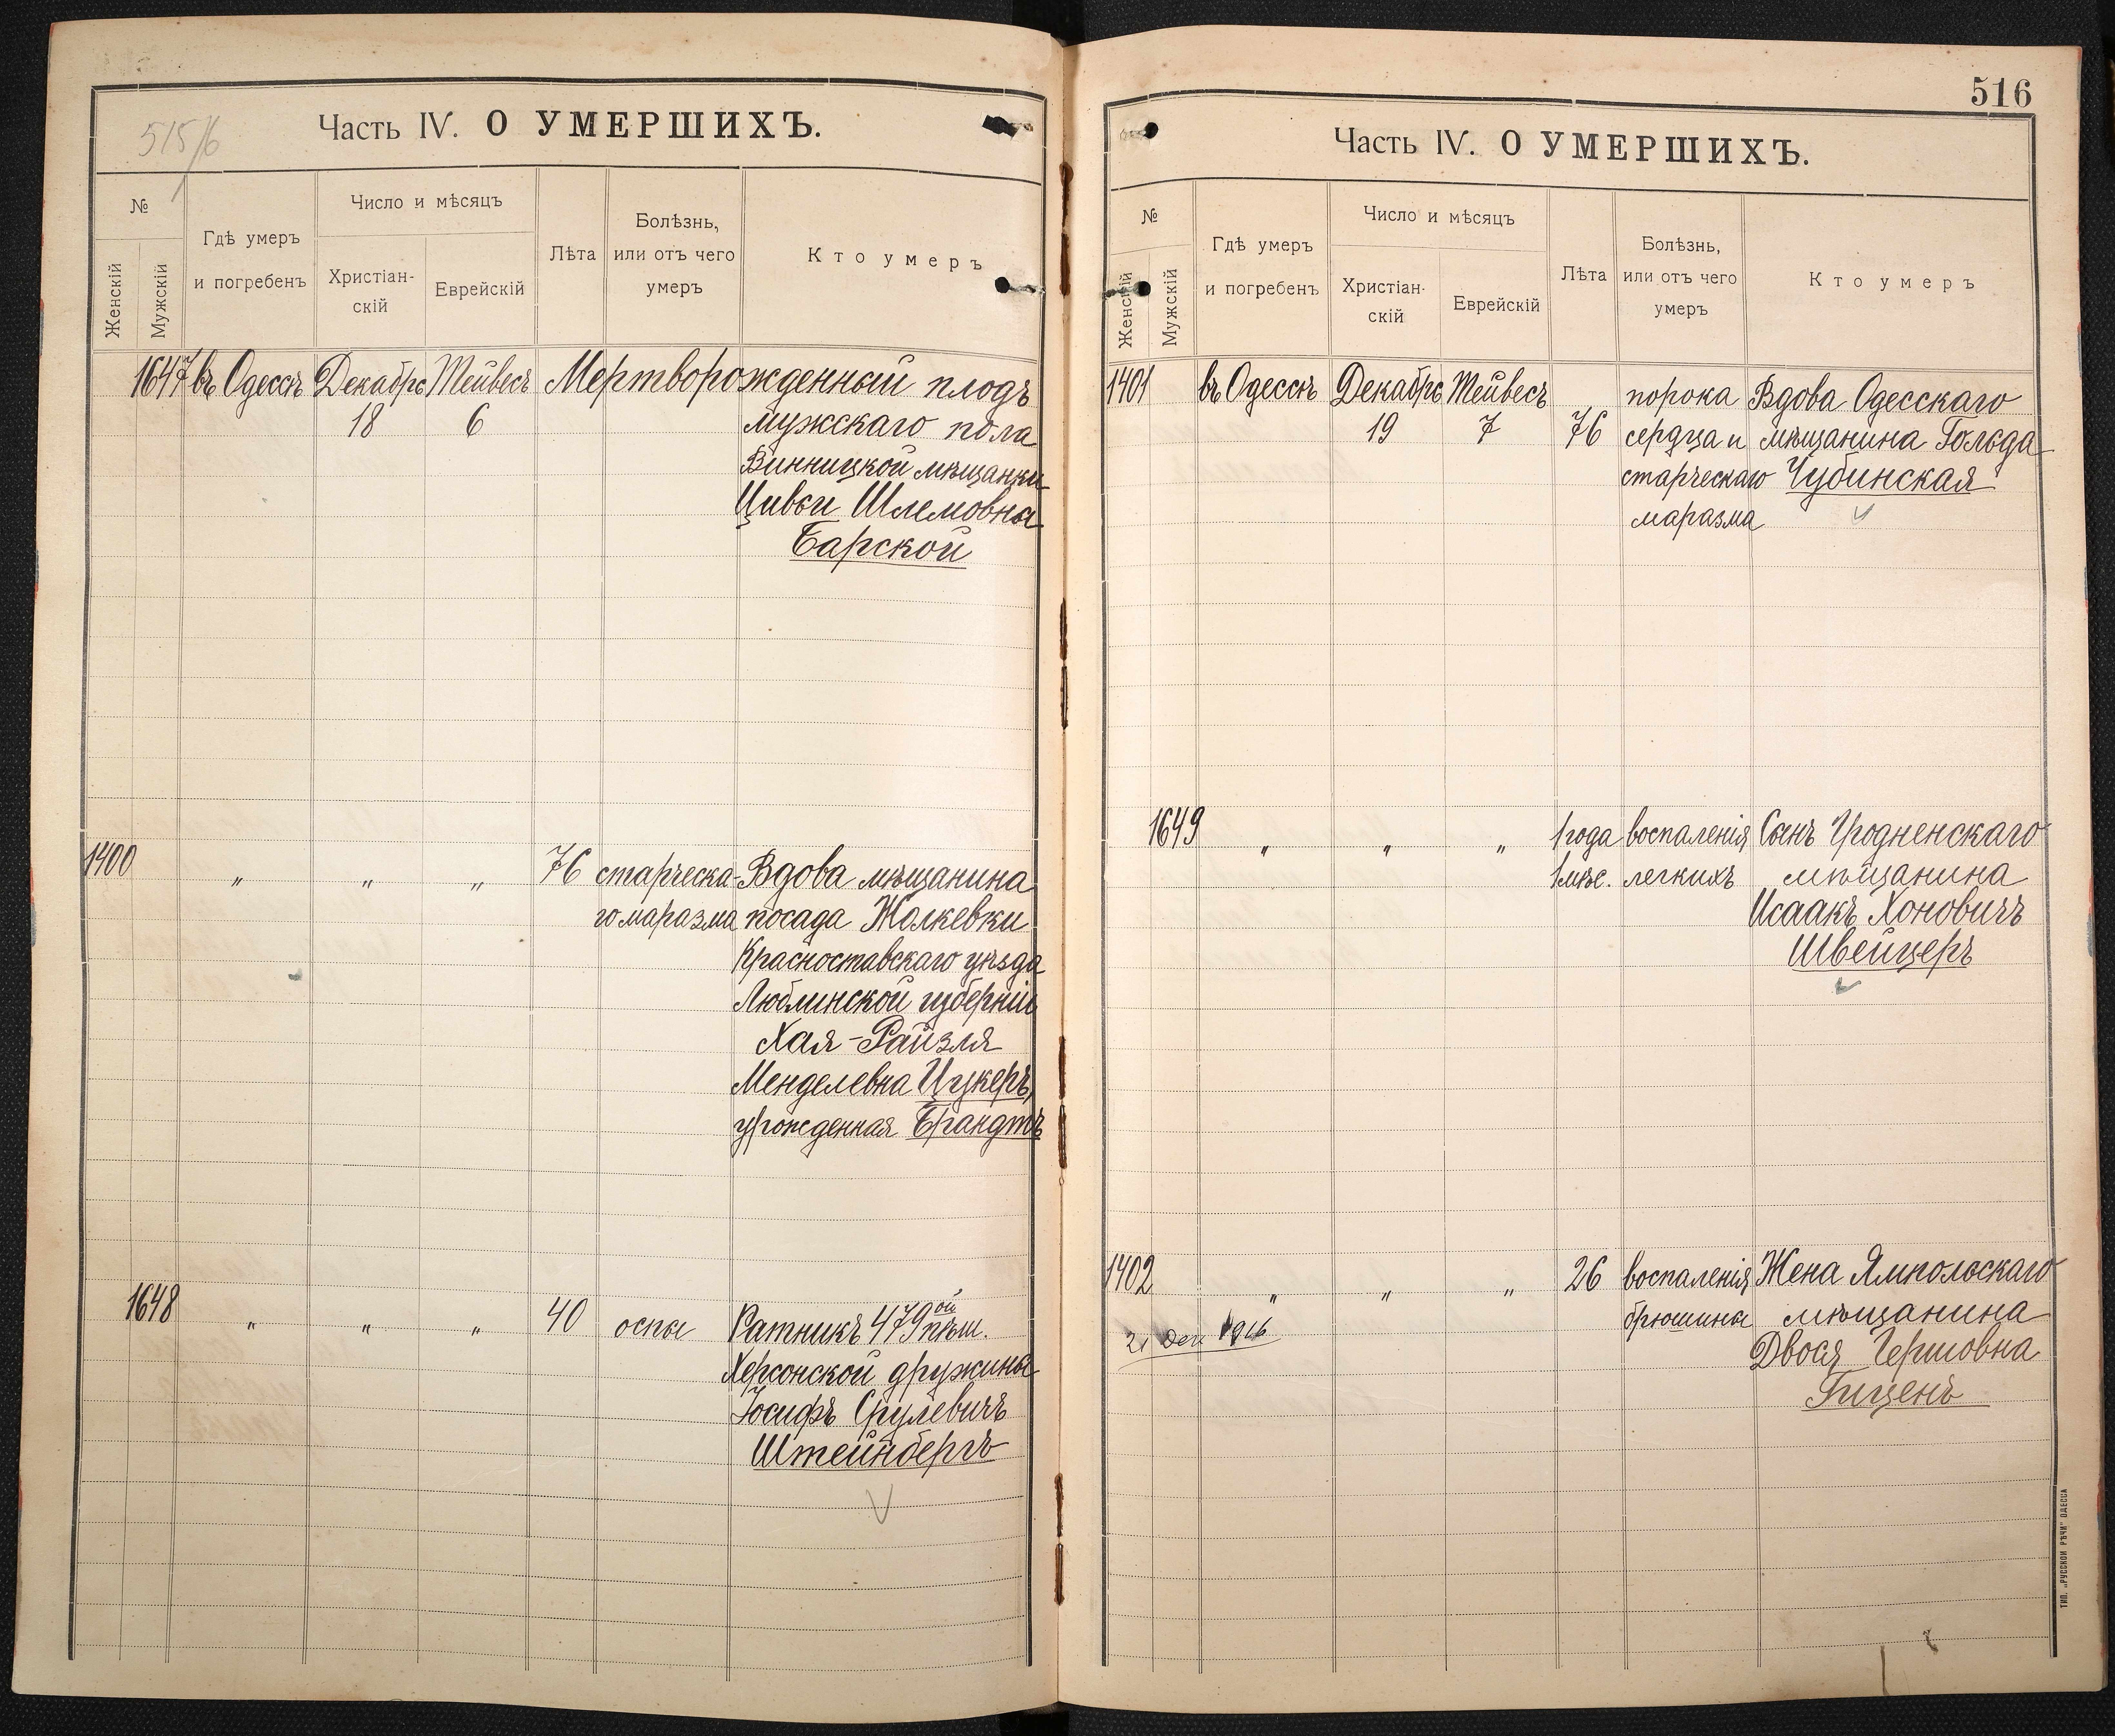 515/6
Часть IV. О УМЕРШИХЪ.
№
Женскій
Мужскій
Гдѣ умеръ
и погребенъ
Число и мѣсяцъ
Христіан-
скій
Еврейскій
Лѣта
Болѣзнь,
или отъ чего
умеръ
Кто умеръ
1647 въ Одессѣ Декабрь Тейвесъ Мертворожденный плодъ
18 6 мужскаго пола
Винницкой мѣщанки
Цивьи Шлемовны
Барской
1400 " " " 76 старческа- Вдова мѣщанина
го маразма посада Жолкевки
Красноставскаго уѣзда
Люблинской губерніи
Хая-Райзля
Менделевна Цукеръ,
урожденная Брандтъ
1648 " " " 40 оспы Ратникъ 479ой пѣш.
Херсонской дружины
Іосифъ Срулевичъ
Штейнбергъ
516
Часть IV. О УМЕРШИХЪ.
№
Женскій
Мужскій
Гдѣ умеръ
и погребенъ
Число и мѣсяцъ
Христіан-
скій
Еврейскій
Лѣта
Болѣзнь,
или отъ чего
умеръ
Кто умеръ
1401 въ Одессѣ Декабрь Тейвесъ порока Вдова Одесскаго
19 7 76 сердца и мѣщанина Гольда
старческаго Чубинская
маразма
1649 " " " 1 года воспаленія Сынъ Гродненскаго
1 мѣс. легкихъ мѣщанина
Исаакъ Хоновичъ
Швейцеръ
1402 " " " 26 воспаленія Жена Ямпольскаго
21 Дек 1916 брюшины мѣщанина
Двося Гершовна
Гиценъ
ТИП. „РУССКОЙ РѢЧИ" ОДЕССА